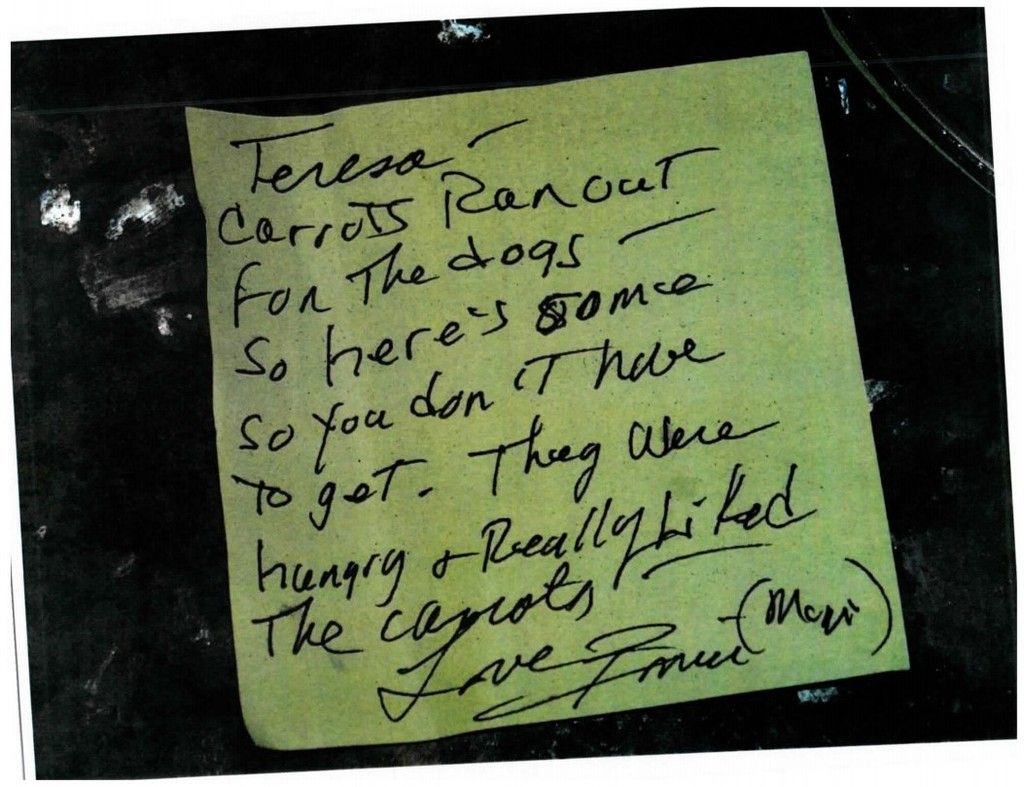 Teresa -
Carrots Ran out
for The dogs -
So here's some
so you don't have
To get. They were
hungry + Really Liked
The carrots
Love